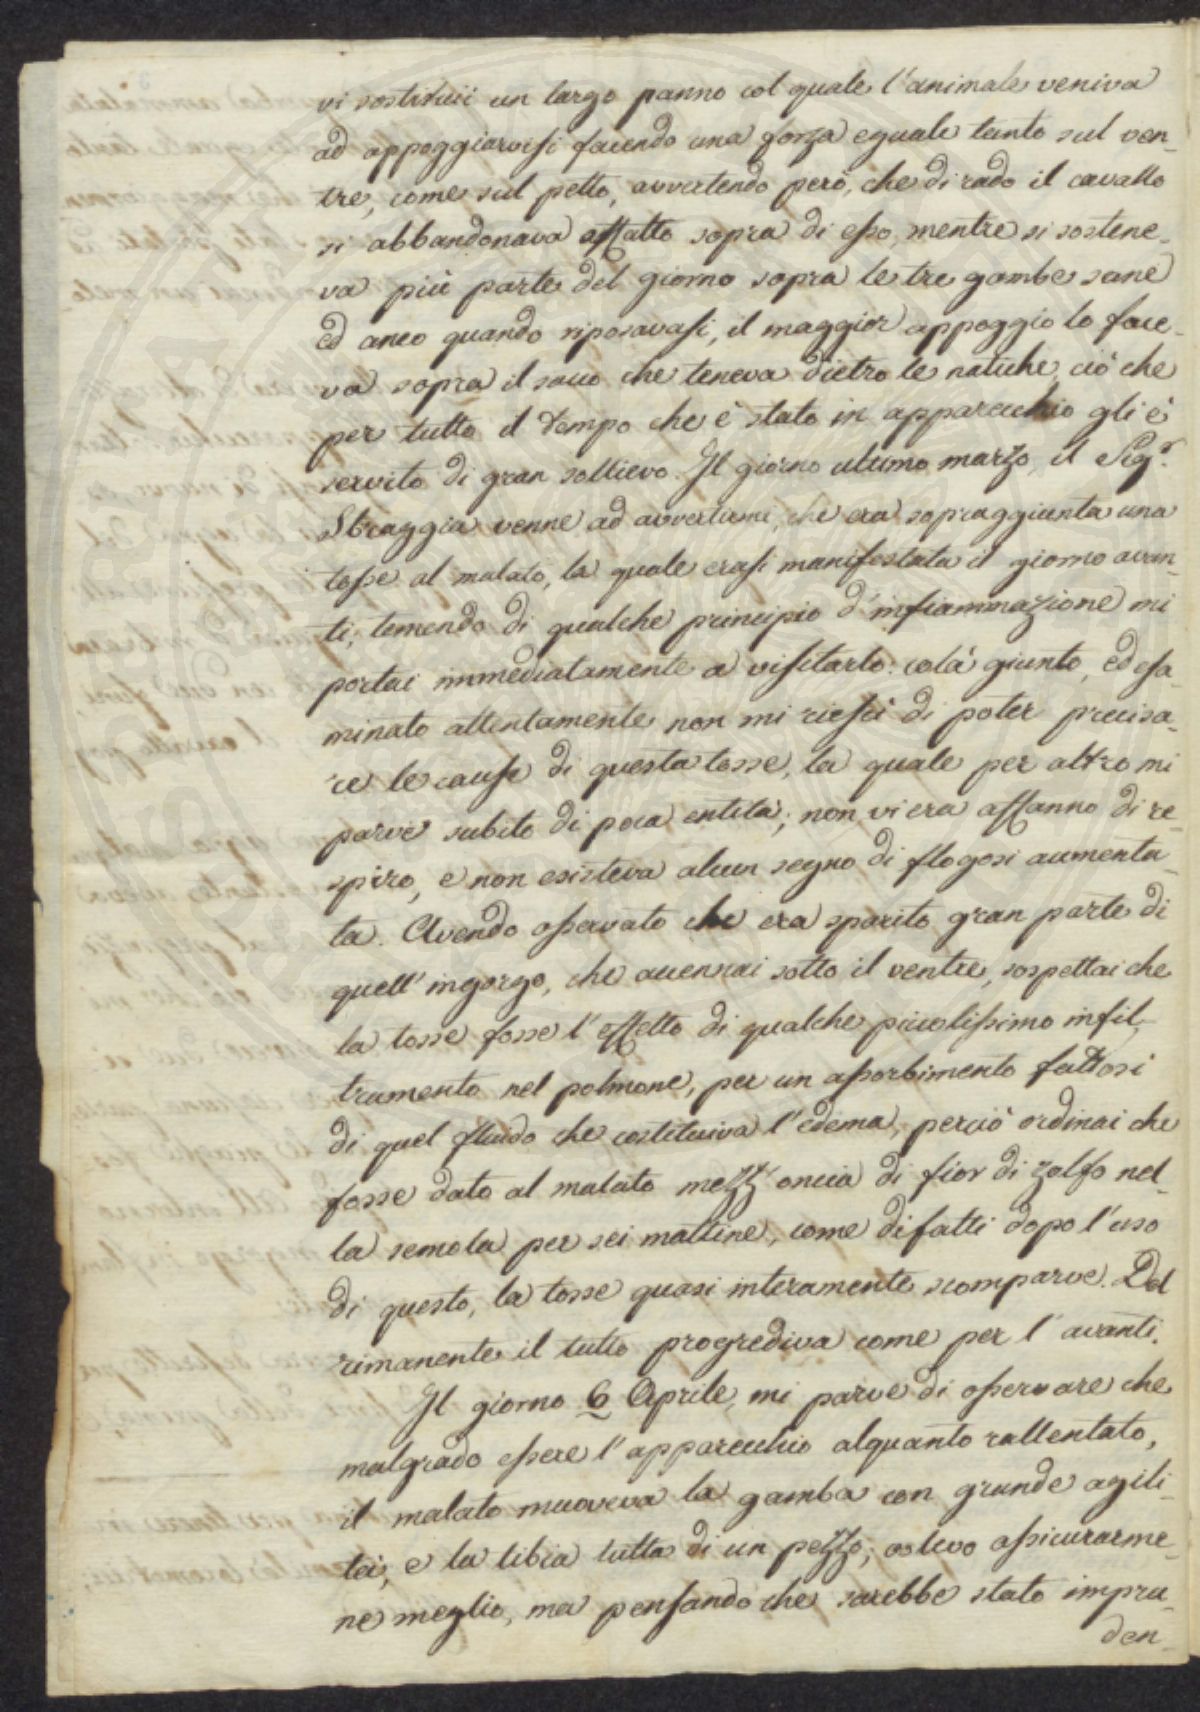 vi sostituii un largo panno col quale l'animale veniva
ad appoggiarvisi facendo una forza eguale tanto sul ven-
tre, come sul petto, avvertendo però, che di rado il cavallo
si abbandonava affatto sopra di esso, mentre si sostene-
va più parte del giorno sopra le tre gambe sane
ed anco quando riposavasi, il maggior appoggio lo face-
va sopra il sacco che teneva dietro le natiche, ciò che
per tutto il tempo che è stato in apparecchio gli è
servito di gran sollievo. Il giorno ultimo marzo, il Sigr.
Sbraggia venne ad avvertirmi, che era sopraggiunta una
tosse al malato, la quale erasi manifestata il giorno avan-
ti; temendo di qualche principio d'infiammazione mi
portai immediatamente a visitarlo: colà giunto, ed esa-
minato attentamente non mi riescì di poter precisa-
re le cause di questa tosse, la quale per altro mi
parve subito di poca entità; non vi era affanno di re-
spiro, e non esisteva alcun segno di flogosi aumenta-
ta. Avendo osservato che era sparito gran parte di
quell'ingorgo, che accennai sotto il ventre, sospettai che
la tosse fosse l'effetto di qualche piccolissimo infil-
tramento nel polmone, per un assorbimento fattosi
di quel fluido che costituiva l'edema, perciò ordinai che
fosse dato al malato mezz'oncia di fior di zolfo nel-
la semola per sei mattine, come difatti dopo l'uso
di questo, la tosse quasi interamente scomparve. Del
rimanente il tutto progrediva come per l'avanti.
Il giorno 6 Aprile, mi parve di osservare che
malgrado essere l'apparecchio alquanto rallentato,
il malato muoveva la gamba con grande agili-
tà, e la tibia tutta di un pezzo; volevo assicurarme-
ne meglio, ma pensando che sarebbe stato impru-
den-